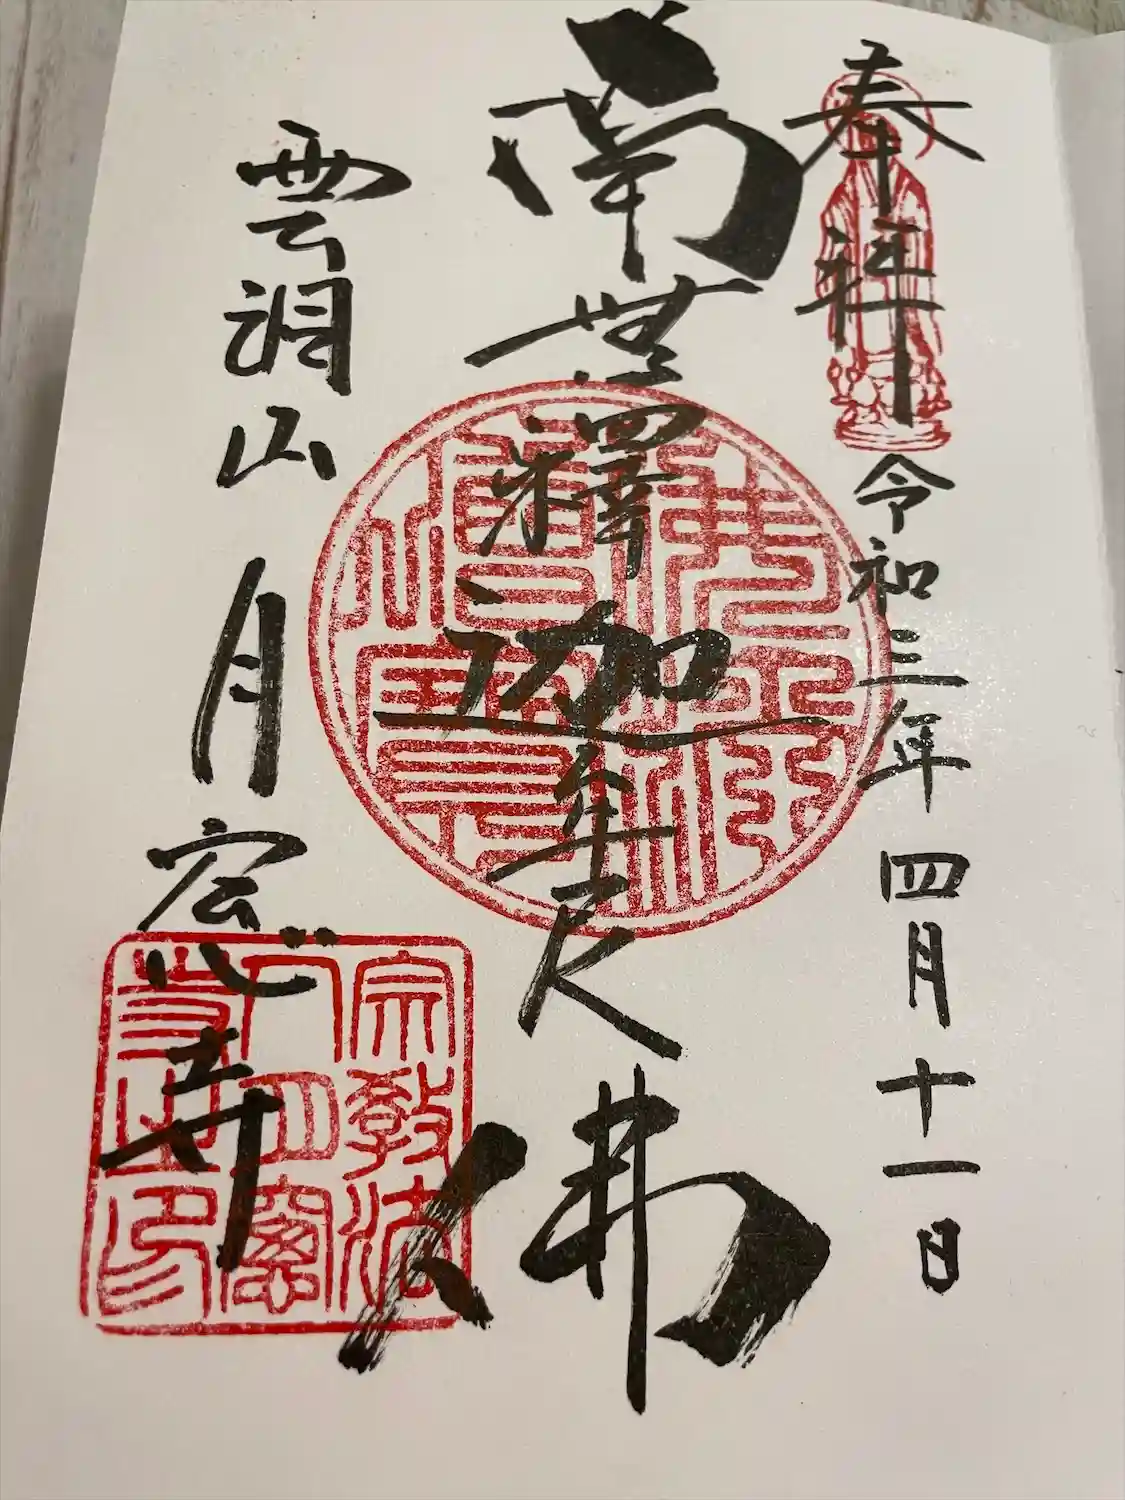 奉拝
令和三年四月十一日
南無釋迦牟尼佛
雲洞山
月窓寺
宗教法
人月窗
寺之印